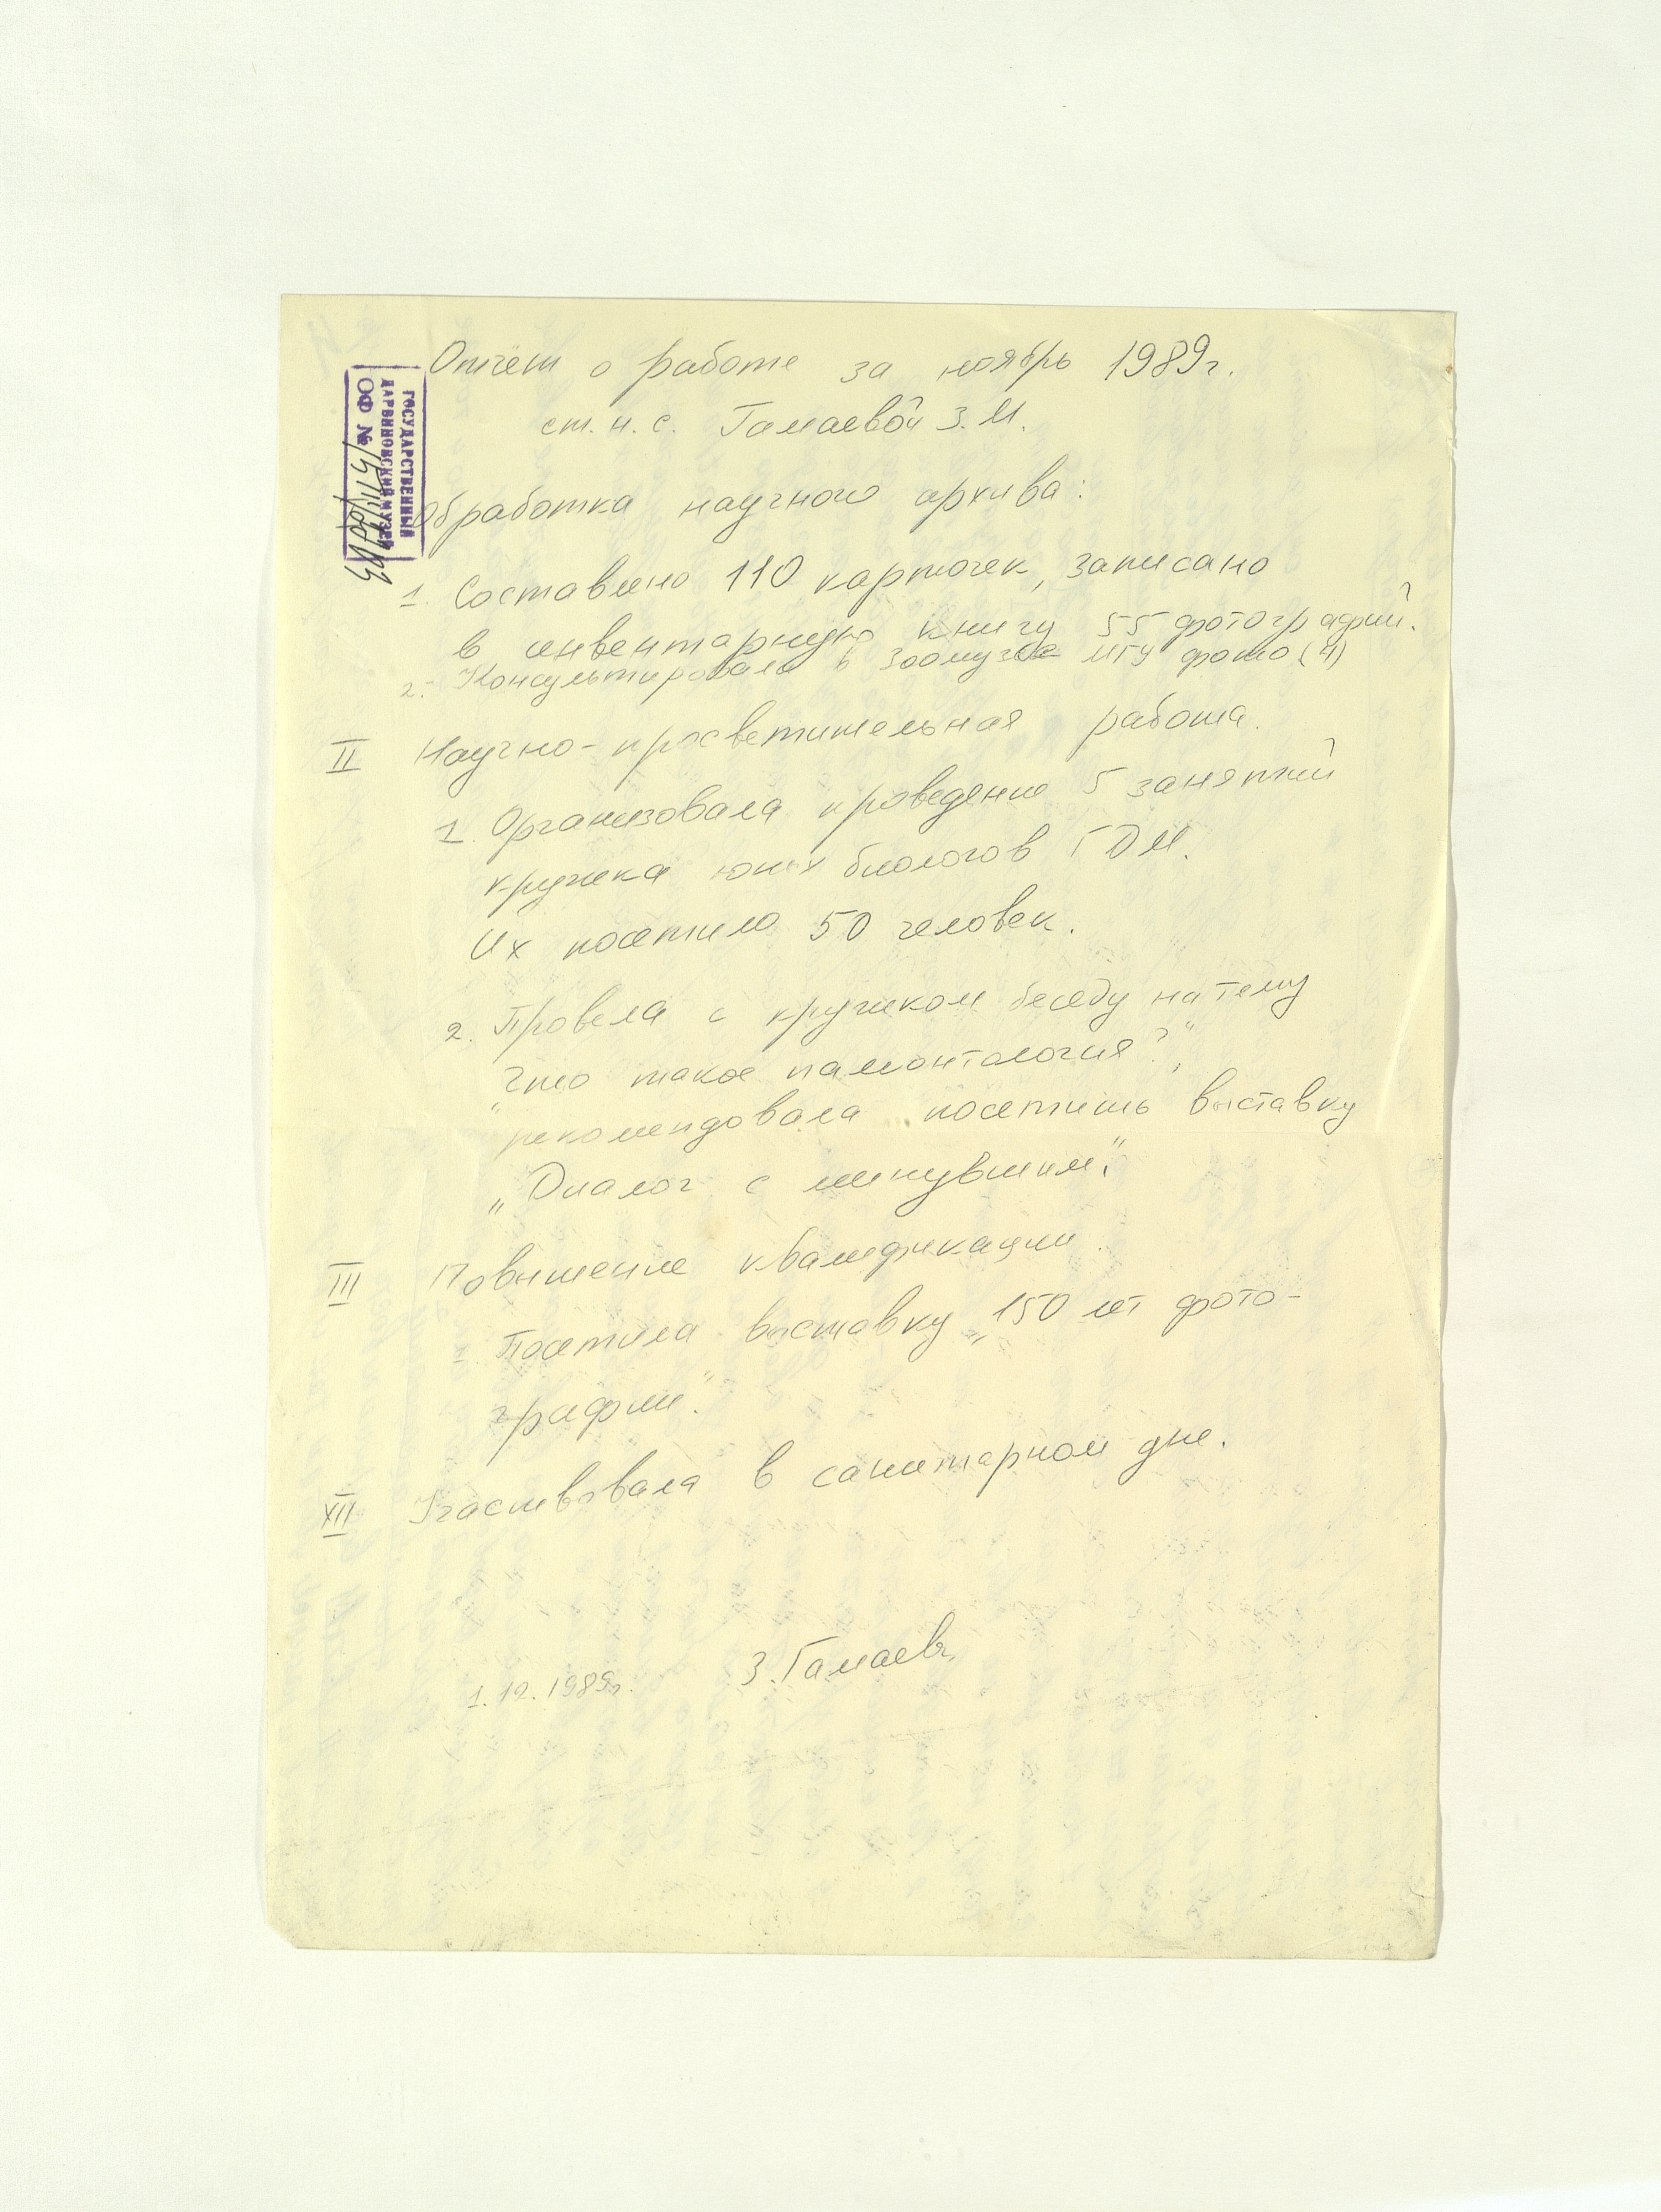 Отчёт о работе за ноябрь 1989г.
ст. н. с. Гамаевой З. М.
ГОСУДАРСТВЕННЫЙ
ДАРВИНОВСКИЙ МУЗЕЙ
ОФ №
Обработка научного архива:
1. Составлено 110 карточек, записано
в инвентарную книгу 55 фотографий.
2. Консультировала в Зоомузее МГУ фото (4)
II Научно-просветительная работа.
1. Организовала проведение 5 занятий
кружка юных биологов ГДМ.
Их посетило 50 человек.
2. Провела с кружком беседу на тему
„Что такое палеонтология?",
рекомендовала посетить выставку
„Диалог с минувшим".
III Повышение квалификации.
1. Посетила выставку „150 лет фото-
графии".
XII Участвовала в санитарном дне.
1.12.1989г. З. Гамаева